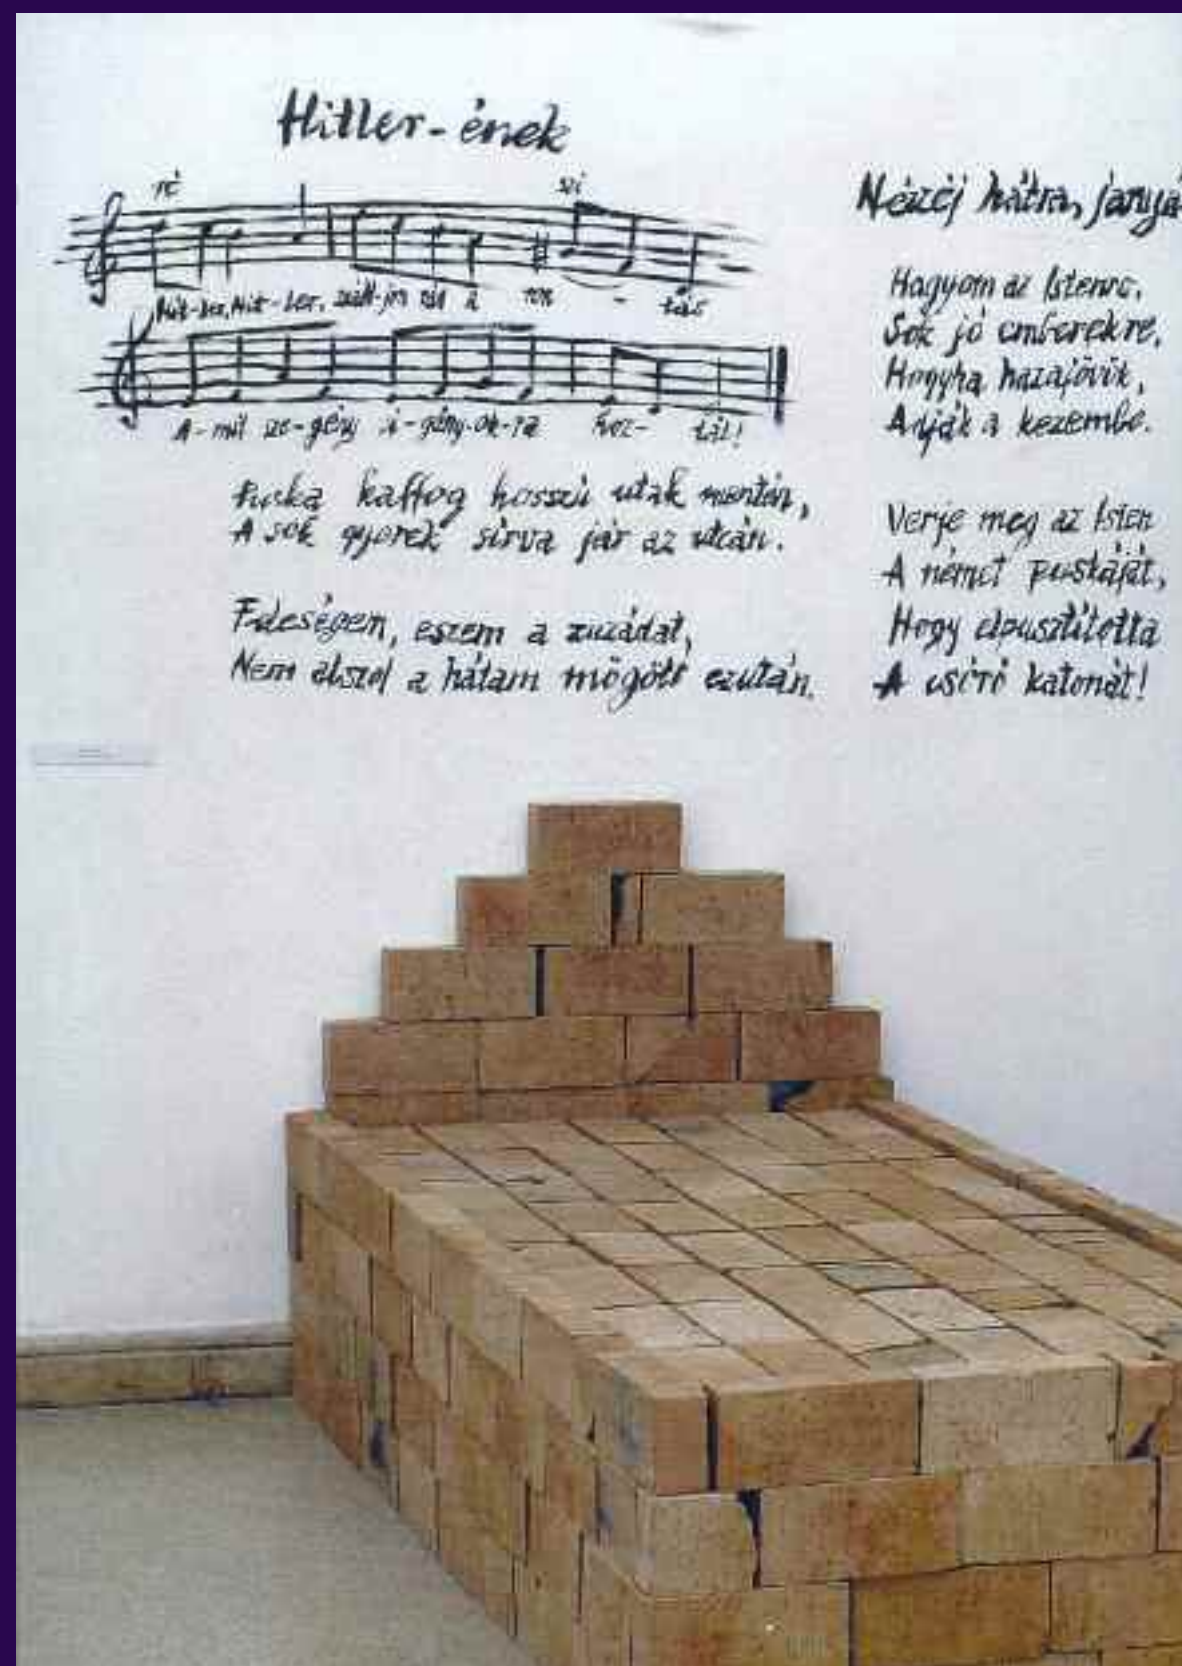 Hitler-ének
ré szi
Hit-ler, Hit-ler, száll-jon rád a ron - tás
A-mit sze-gény ci-gány-ok-ra hoz- tál!
Puska kaffog hosszú utak mentén,
A sok gyerek sírva jár az utcán.
Feleségem, eszem a zuzádat,
Nem alszol a hátam mögött ezután.
Nézzéj hátra,
Hagyom az Istenre,
Sok jó emberekre,
Hogyha hazajövik,
Adják a kezembe.
Verje meg az Isten
A német puskáját,
Hogy elpusztította
A csóró katonát!